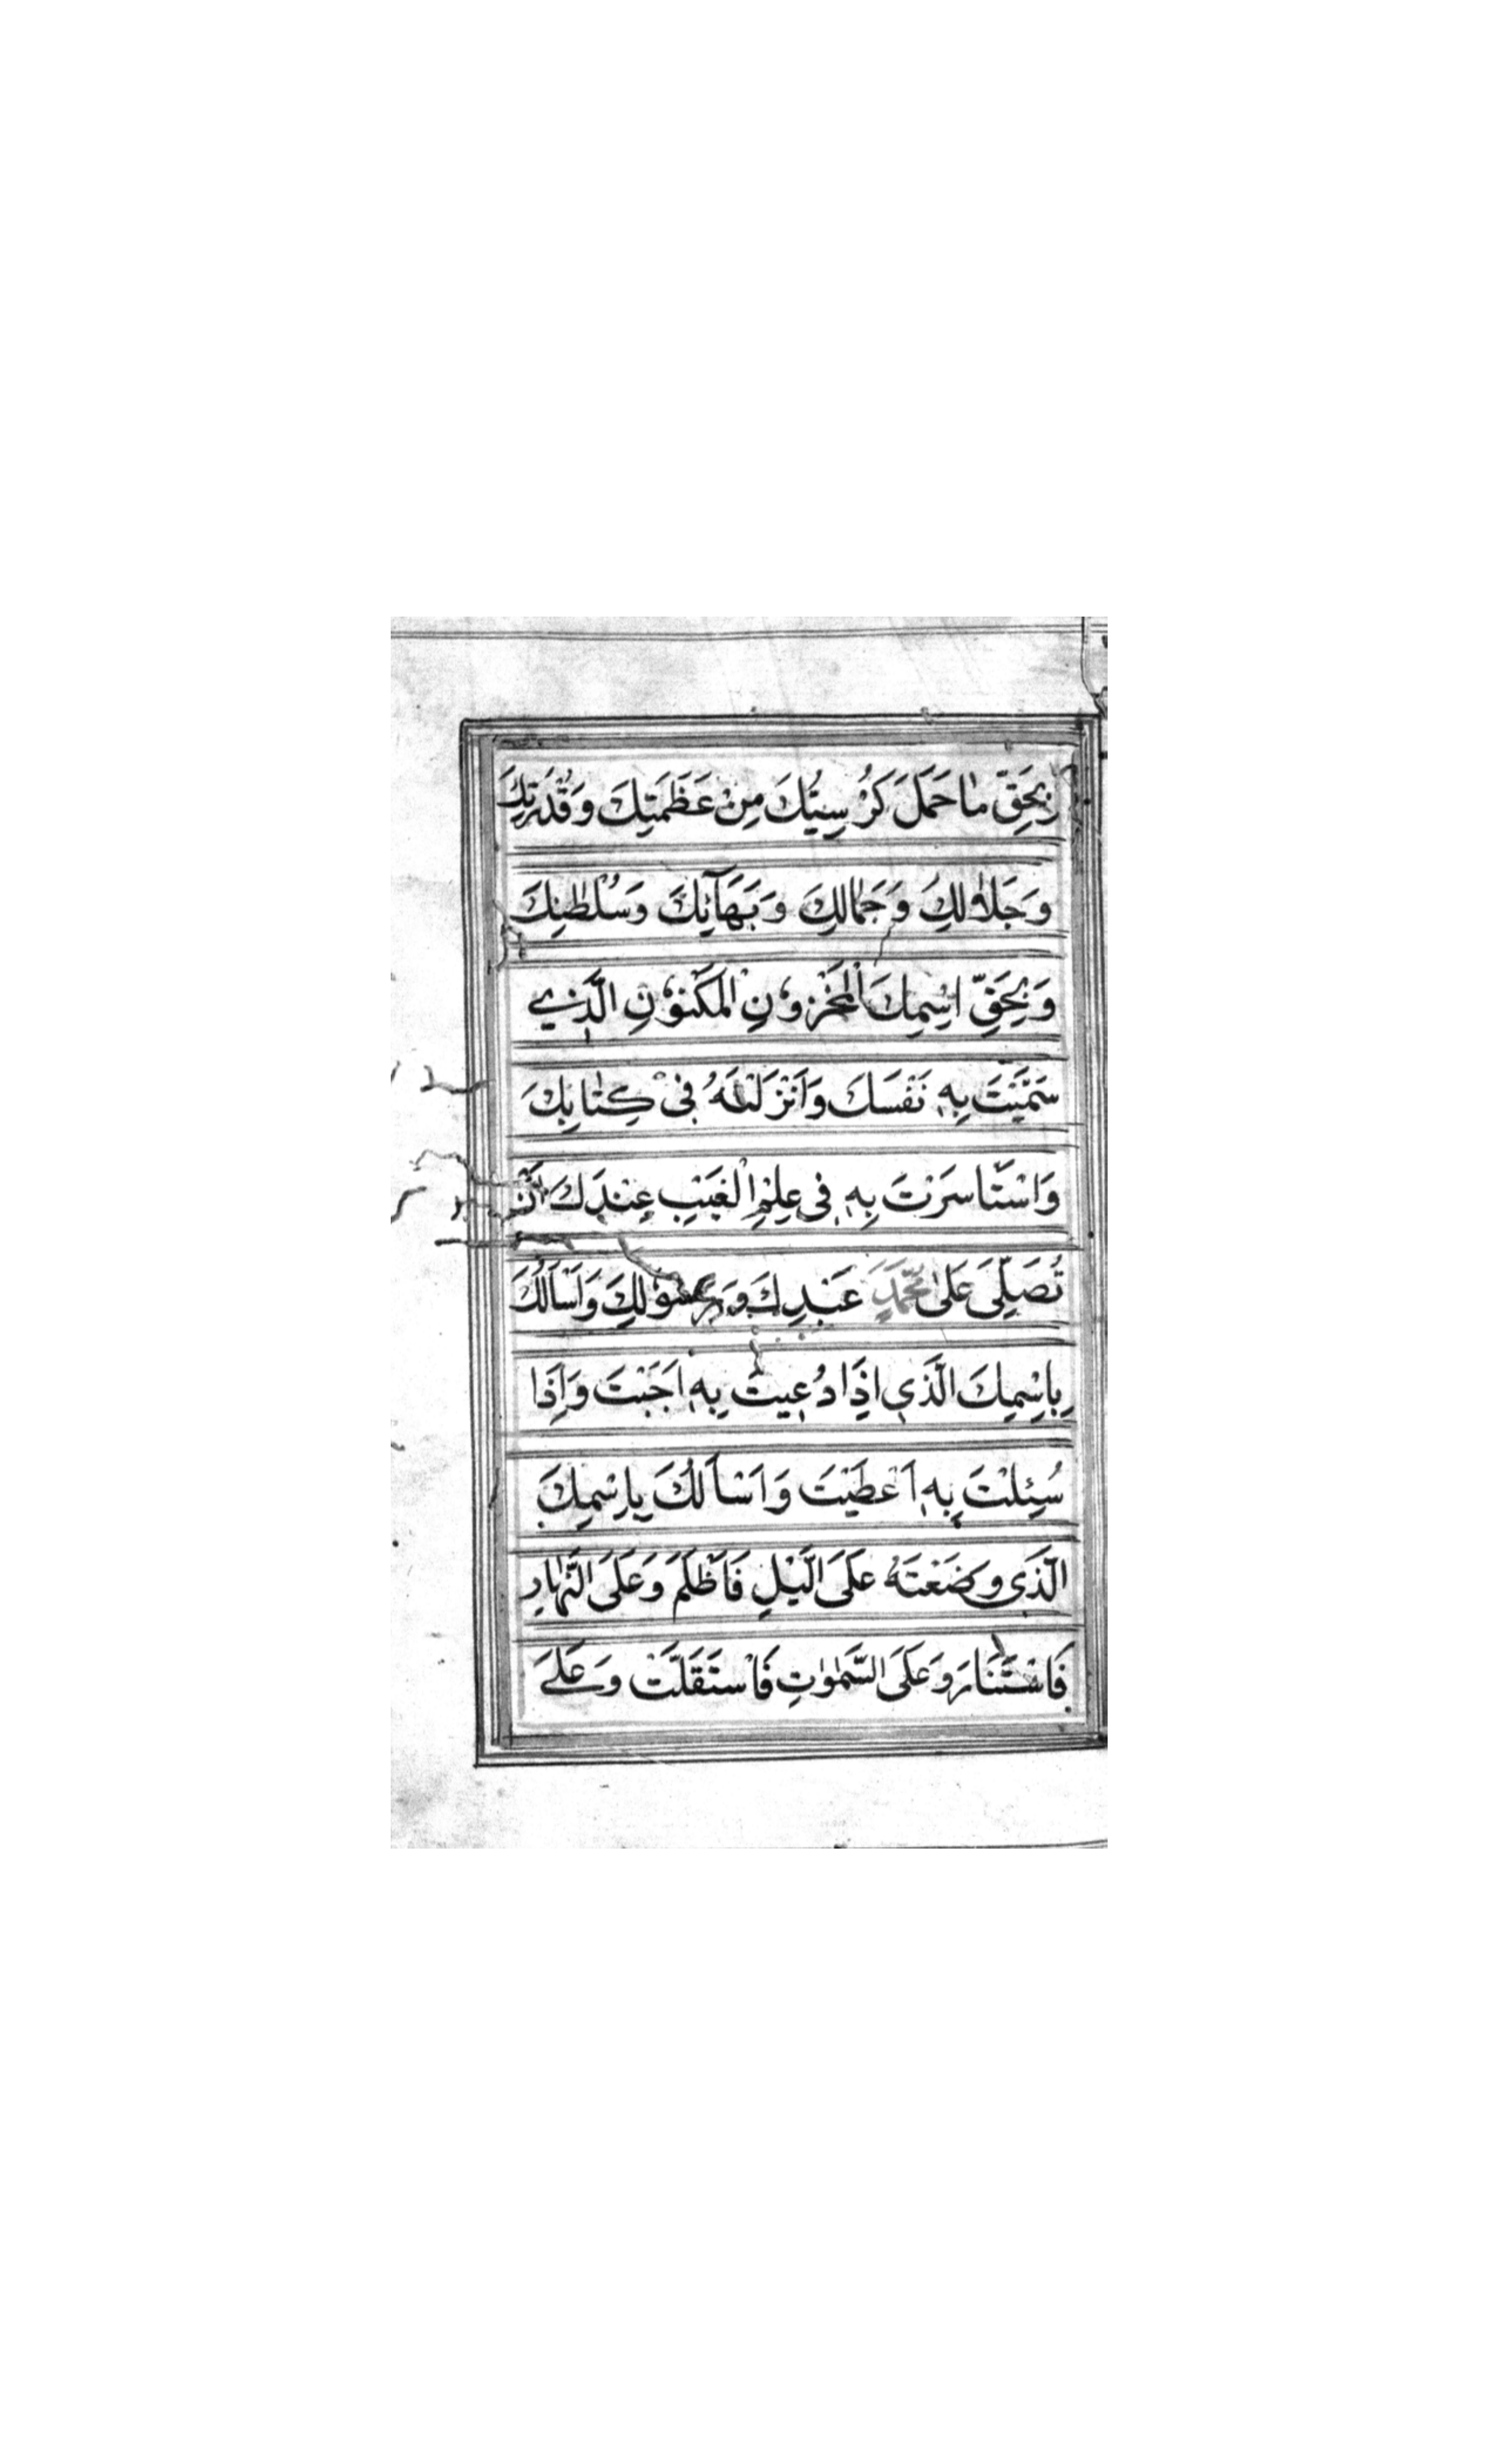 بِحَقِّ مٰا حَمَلَ كُرْسِيُّكَ مِنْ عَظَمَتِكَ وَقُدْرَتِكَ
وَجَلاٰلِكَ وَجَمٰالِكَ وَبَهَآئِكَ وَسُلْطٰنِكَ
وَبِحَقِّ اسْمِكَ الْمَخْزُونِ الْمَكْنُونِ الَّذِي
سَمَّيْتَ بِهٖ نَفْسَكَ وَاَنْزَلْتَهُ فِي كِتٰابِكَ
وَاسْتَاسَرْتَ بِهٖ فِي عِلْمِ الْغَيْبِ عِنْدَكَ اَنْ
تُصَلِّيَ عَلٰى مُحَمَّدٍ عَبْدِكَ وَرَسُولِكَ وَاَسْاَلُكَ
بِاسْمِكَ الَّذِي اِذَا دُعِيتَ بِهٖ اَجَبْتَ وَاِذَا
سُئِلْتَ بِهٖ اَعْطَيْتَ وَاَسْاَلُكَ بِاسْمِكَ
الَّذِي وَضَعْتَهُ عَلَى الَّيْلِ فَاَظْلَمَ وَعَلَى النَّهٰارِ
فَاسْتَنَارَ وَعَلَى السَّمٰوٰتِ فَاسْتَقَلَّتْ وَعَلَى